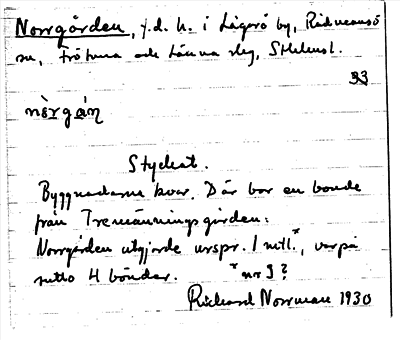 Norrgården, f.d. h. i Lagerö by, Rådmansö
sn, Frötuna och Länna slg, Sthlmsl.
33
nèrgán
Styckat.
Byggnaderna kvar. Där bor en bonde
från Tremänningsgården:
Norrgården utgjorde urspr. 1 mtl.*, varpå
sutto 4 bönder. * nr 3?
Rickard Norrman 1930